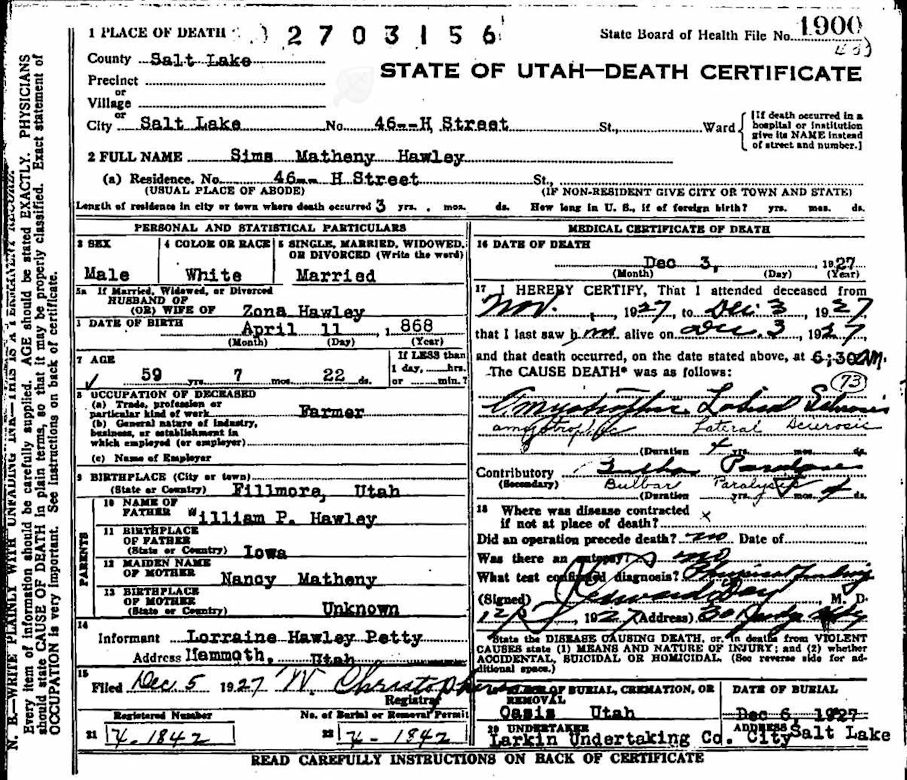 1 PLACE OF DEATH 2703156 State Board of Health File No. 1900
County Salt Lake
STATE OF UTAH—DEATH CERTIFICATE
Precinct
or
Village
or
City Salt Lake No. 46--H Street St., Ward [If death occurred in a hospital or institution give its NAME instead of street and number.]
2 FULL NAME Sims Matheny Hawley
(a) Residence. No. 46-- H Street St.,
(USUAL PLACE OF ABODE) (IF NON-RESIDENT GIVE CITY OR TOWN AND STATE)
Length of residence in city or town where death occurred 3 yrs. mos. ds. How long in U. S., if of foreign birth? yrs. mos. ds.
PERSONAL AND STATISTICAL PARTICULARS
3 SEX 4 COLOR OR RACE 5 SINGLE, MARRIED, WIDOWED, OR DIVORCED (Write the word)
Male White Married
5a If Married, Widowed, or Divorced
HUSBAND OF
(OR) WIFE OF Zona Hawley
DATE OF BIRTH April 11, 1868
(Month) (Day) (Year)
7 AGE If LESS than
59 yrs. 7 mos. 22 ds. 1 day, hrs. or min.?
8 OCCUPATION OF DECEASED
(a) Trade, profession or
particular kind of work Farmer
(b) General nature of industry,
business, or establishment in
which employed (or employer)
(c) Name of Employer
9 BIRTHPLACE (City or town)
(State or Country) Fillmore, Utah
PARENTS
10 NAME OF
FATHER William P. Hawley
11 BIRTHPLACE
OF FATHER
(State or Country) Iowa
12 MAIDEN NAME
OF MOTHER Nancy Matheny
13 BIRTHPLACE
OF MOTHER
(State or Country Unknown
14
Informant Lorraine Hawley Petty
Address Mammoth, Utah
15
Filed Dec. 5 1927 W Christopherson
Registrar
Registered Number No. of Burial or Removal Permit
21 X-1842 22 X-1842
MEDICAL CERTIFICATE OF DEATH
16 DATE OF DEATH
Dec 3, 1927
(Month) (Day) (Year)
17 I HEREBY CERTIFY, That I attended deceased from
Nov. , 1927, to Dec. 3, 1927
that I last saw him alive on Dec. 3, 1927
and that death occurred, on the date stated above, at 6:30AM.
The CAUSE DEATH* was as follows:
(73)
Amyotrophic Lateral Sclerosis
amyotrophic Lateral Sclerosis
(Duration yrs. mos. ds.
Contributory Bulbar Paralysis
(Secondary) Bulbar Paralysis
(Duration yrs. mos. ds.
18 Where was disease contracted
if not at place of death? x
Did an operation precede death? no Date of
Was there an autopsy? no
What test confirmed diagnosis?
(Signed) , M. D.
, 1927 (Address)
*State the DISEASE CAUSING DEATH, or, in deaths from VIOLENT
CAUSES state (1) MEANS AND NATURE OF INJURY; and (2) whether
ACCIDENTAL, SUICIDAL OR HOMICIDAL. (See reverse side for additional space.)
PLACE OF BURIAL, CREMATION, OR REMOVAL DATE OF BURIAL
Oasis Utah Dec 6, 1927
20 UNDERTAKER ADDRESS
Larkin Undertaking Co. City Salt Lake
READ CAREFULLY INSTRUCTIONS ON BACK OF CERTIFICATE
N. B.—WRITE PLAINLY WITH UNFADING INK—THIS IS A PERMANENT RECORD.
Every item of information should be carefully supplied. AGE should be stated EXACTLY. PHYSICIANS
should state CAUSE OF DEATH in plain terms, so that it may be properly classified. Exact statement of
OCCUPATION is very important. See instructions on back of certificate.